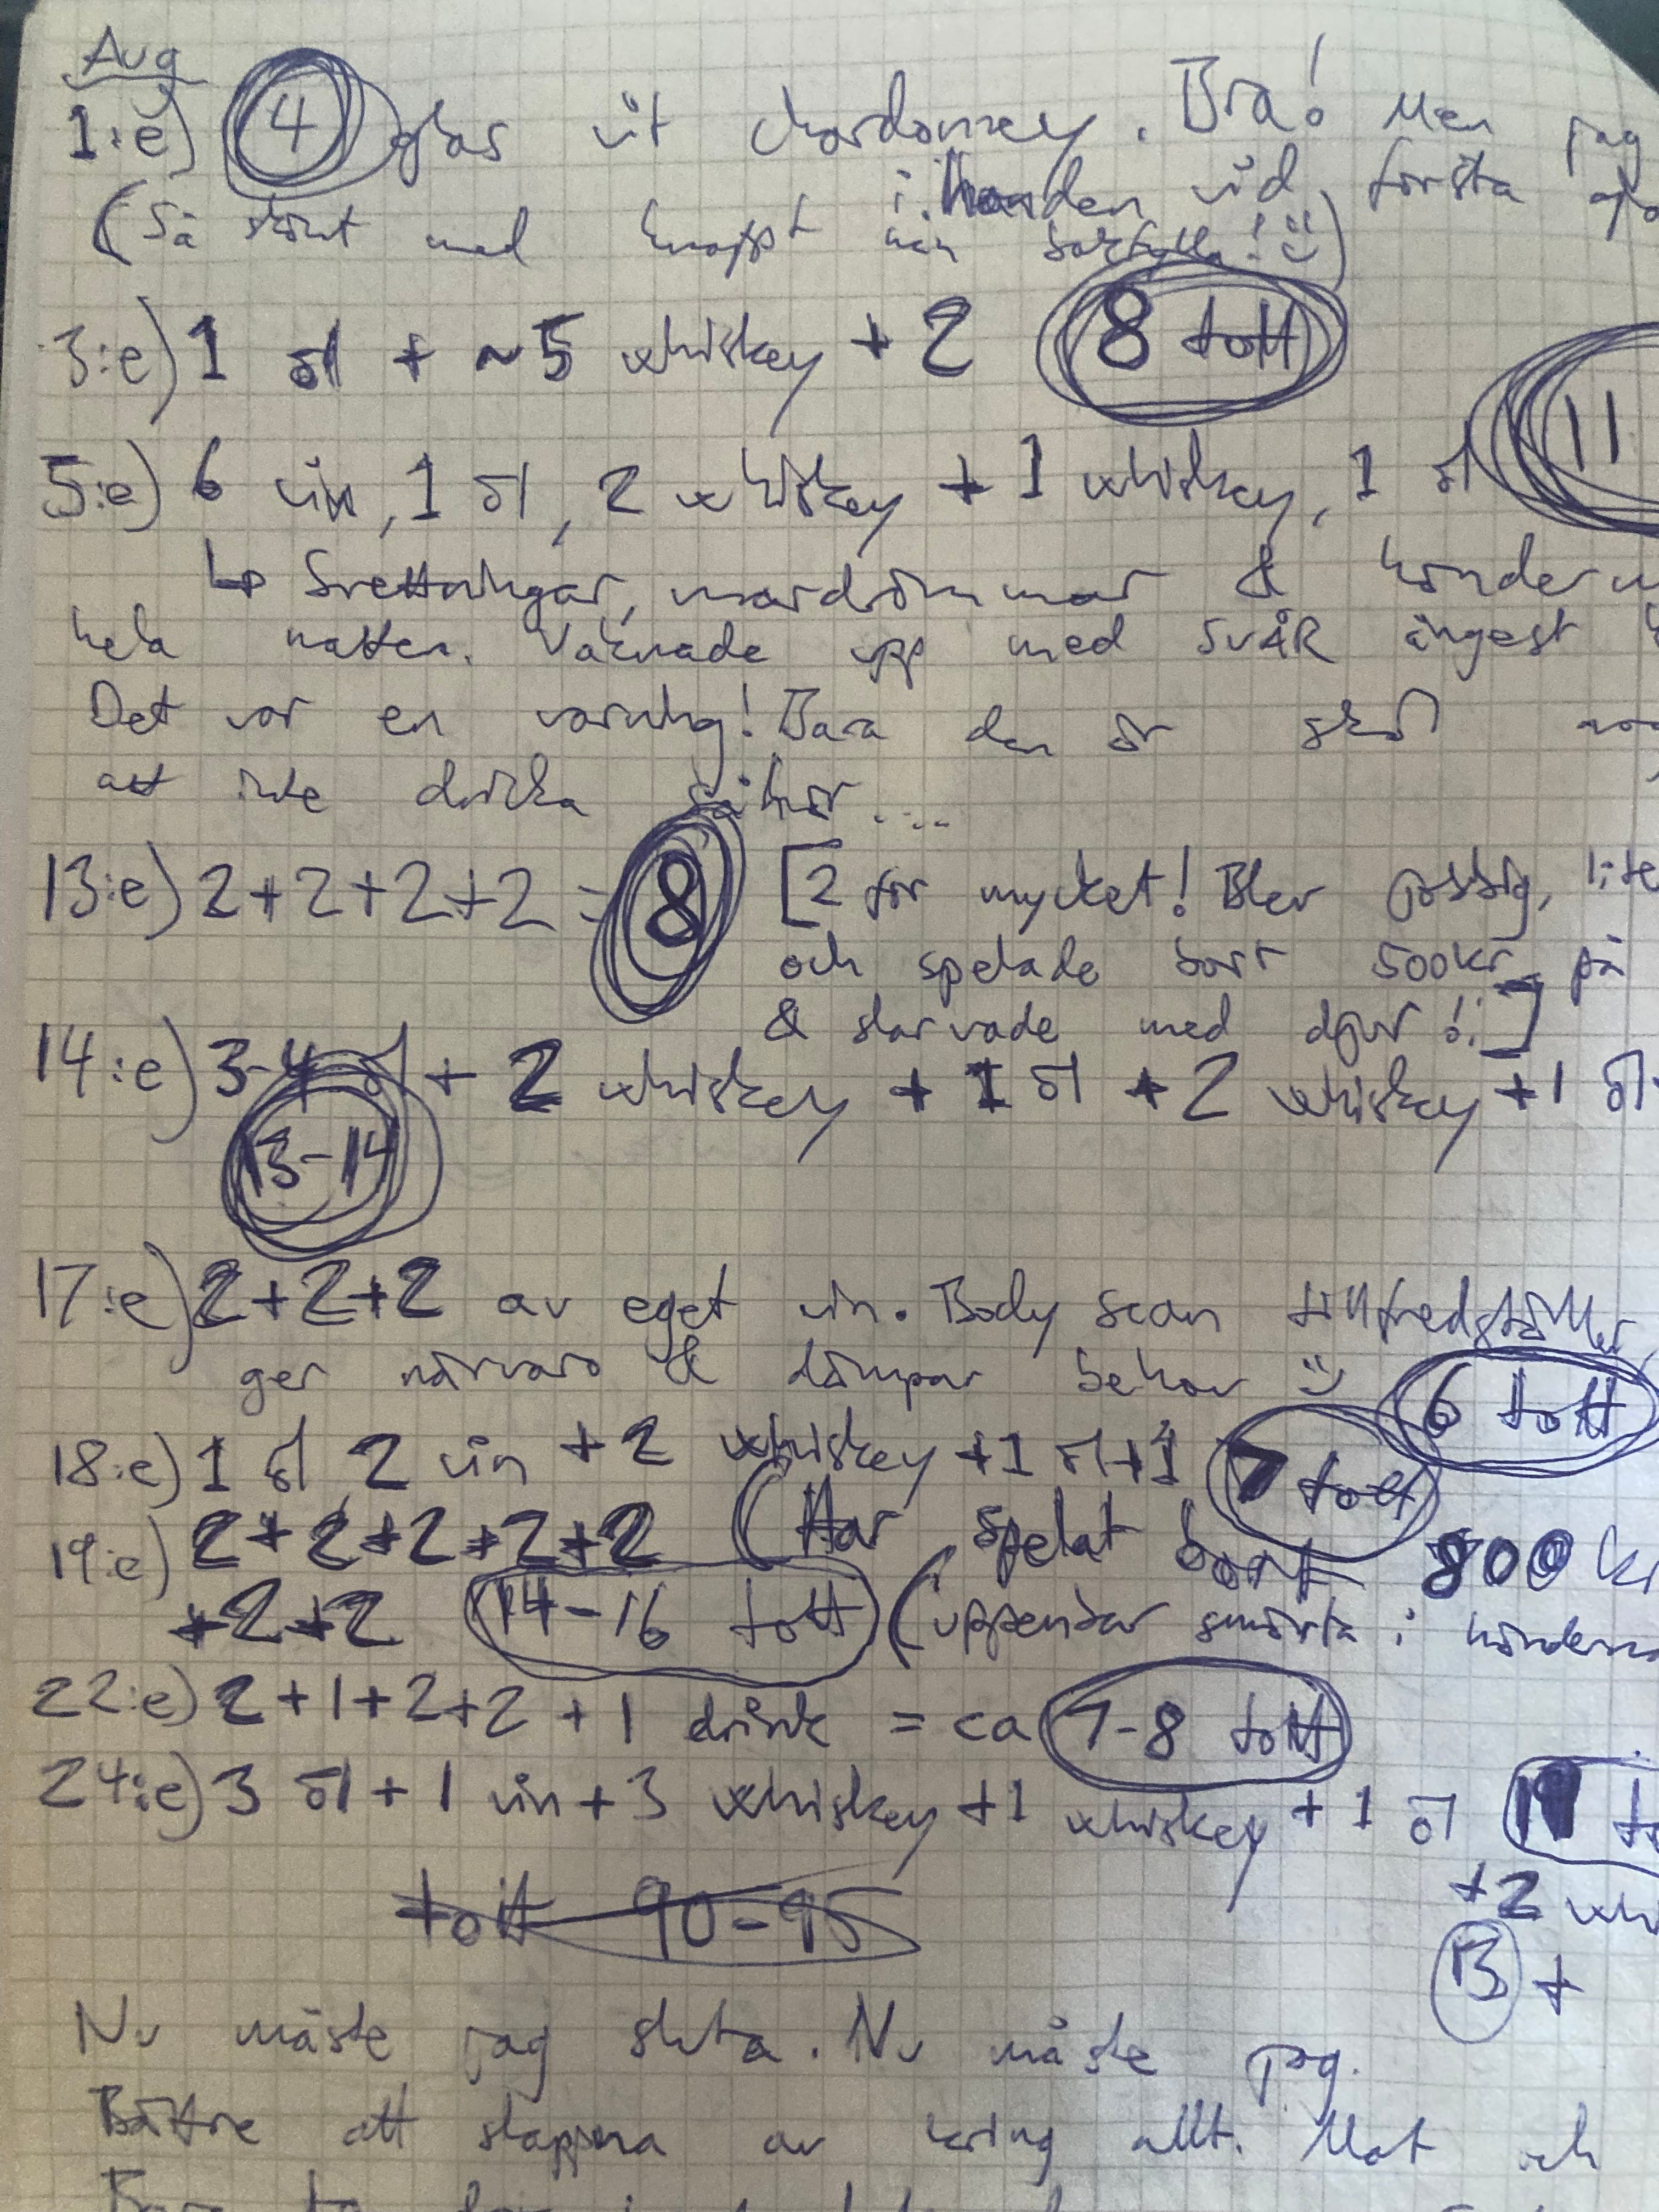 Aug
1:e) 4 glas vit chardonney. Bra! Men jag
i handen vid första
(Så skönt med knappt nån bakfylla! :))
3:e) 1 öl + ~5 whiskey + 2 8 tott
5:e) 6 vin, 1 öl, 2 whiskey + 1 whiskey, 1 öl 11
↳ Svettningar, mardrömmar &
hela natten. Vaknade upp med SVÅR ångest
Det var en varning! Bara den är skäl
att inte dricka såhär....
13:e) 2+2+2+2 = 8 [2 för mycket! Blev gossig, lite
och spelade bort 500kr på
& slarvade med djur!:]
14:e) 3-4 öl + 2 whiskey + 1 öl + 2 whiskey + 1 öl
13-14
17:e) 2+2+2 av eget vin. Body scan tillfredställer,
ger närvaro & dämpar behov :) 6 tott
18:e) 1 öl 2 vin + 2 whiskey + 1 öl + 1 7 tott
19:e) 2+2+2+2+2 (Har spelat bort 800 kr
+2+2 14-16 tott (uppenbar smärta i
22:e) 2+1+2+2+1 drink = ca 7-8 tott
24:e) 3 öl + 1 vin + 3 whiskey + 1 whiskey + 1 öl
+2
tott 90-95
13 +
Nu måste jag sluta. Nu måste jag.
Bättre att slappna av kring allt. Mat och